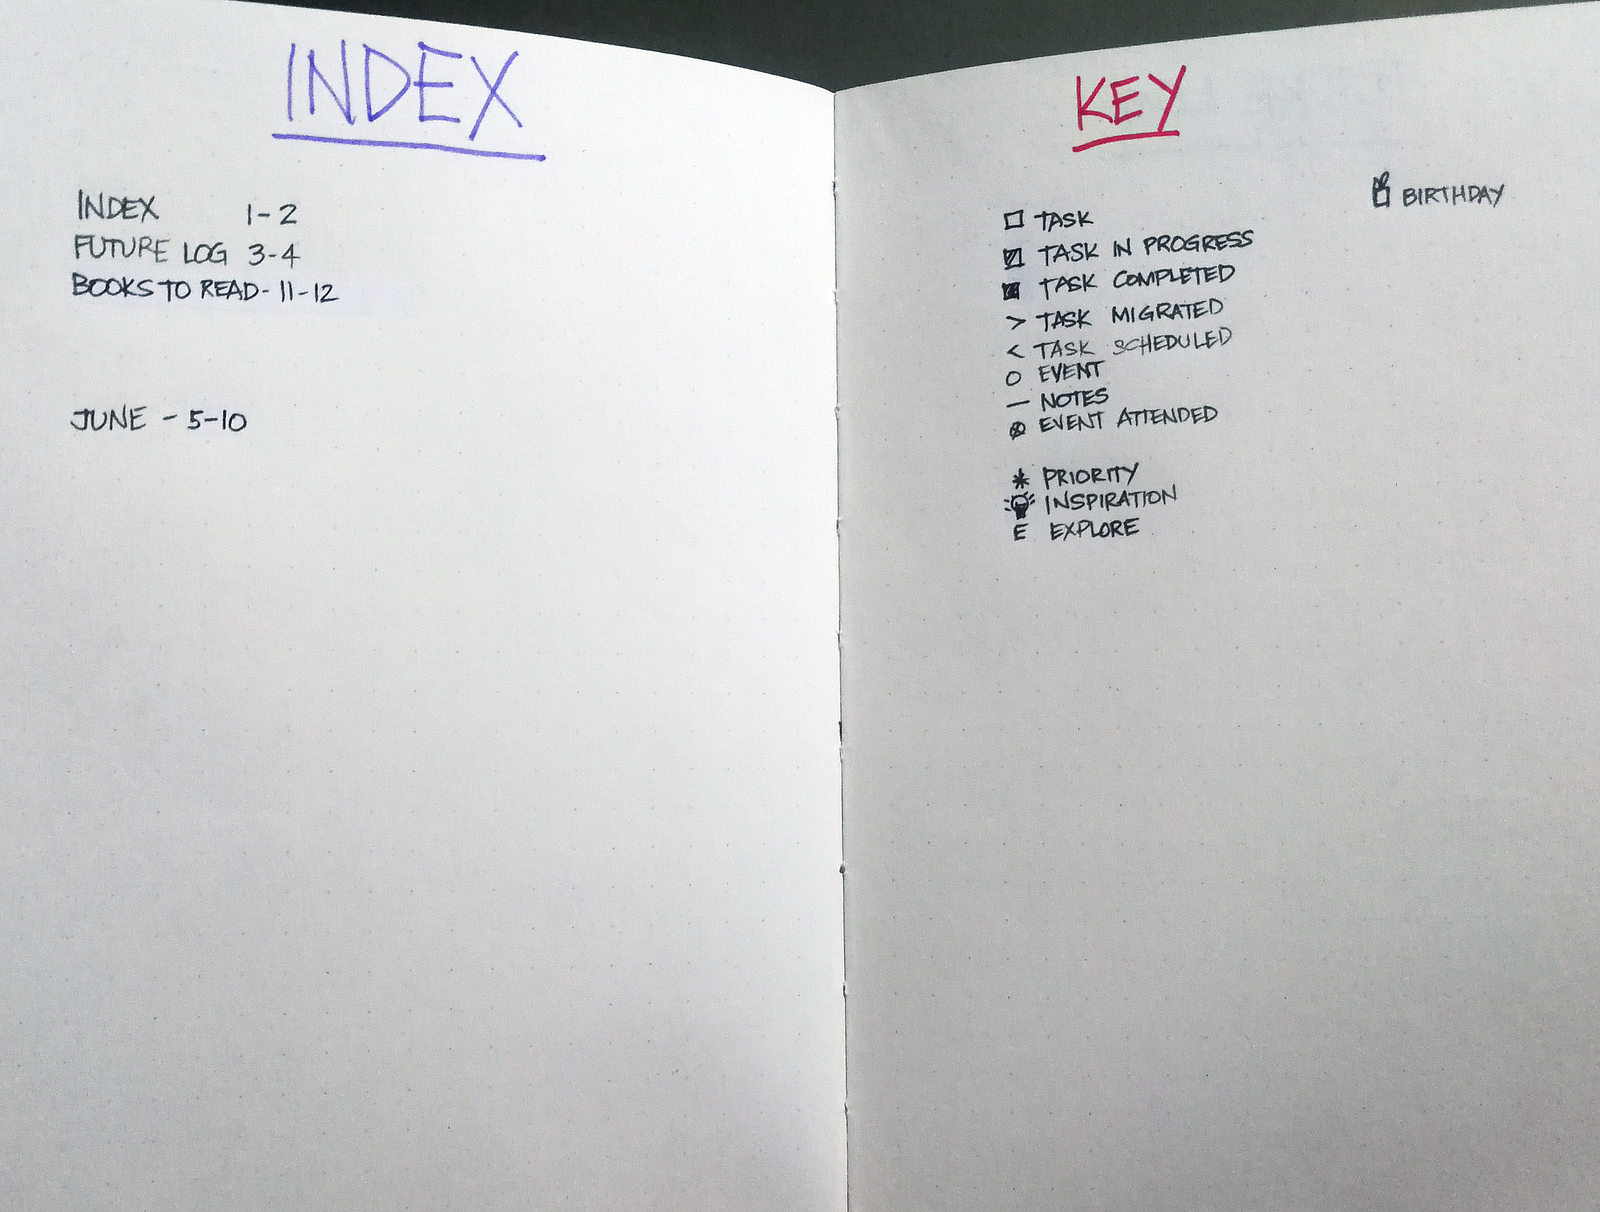 INDEX
INDEX 1-2
FUTURE LOG 3-4
BOOKS TO READ- 11-12
JUNE - 5-10
KEY
☐ TASK
TASK IN PROGRESS
■ TASK COMPLETED
> TASK MIGRATED
< TASK SCHEDULED
O EVENT
— NOTES
⊗ EVENT ATTENDED
* PRIORITY
INSPIRATION
E EXPLORE
BIRTHDAY